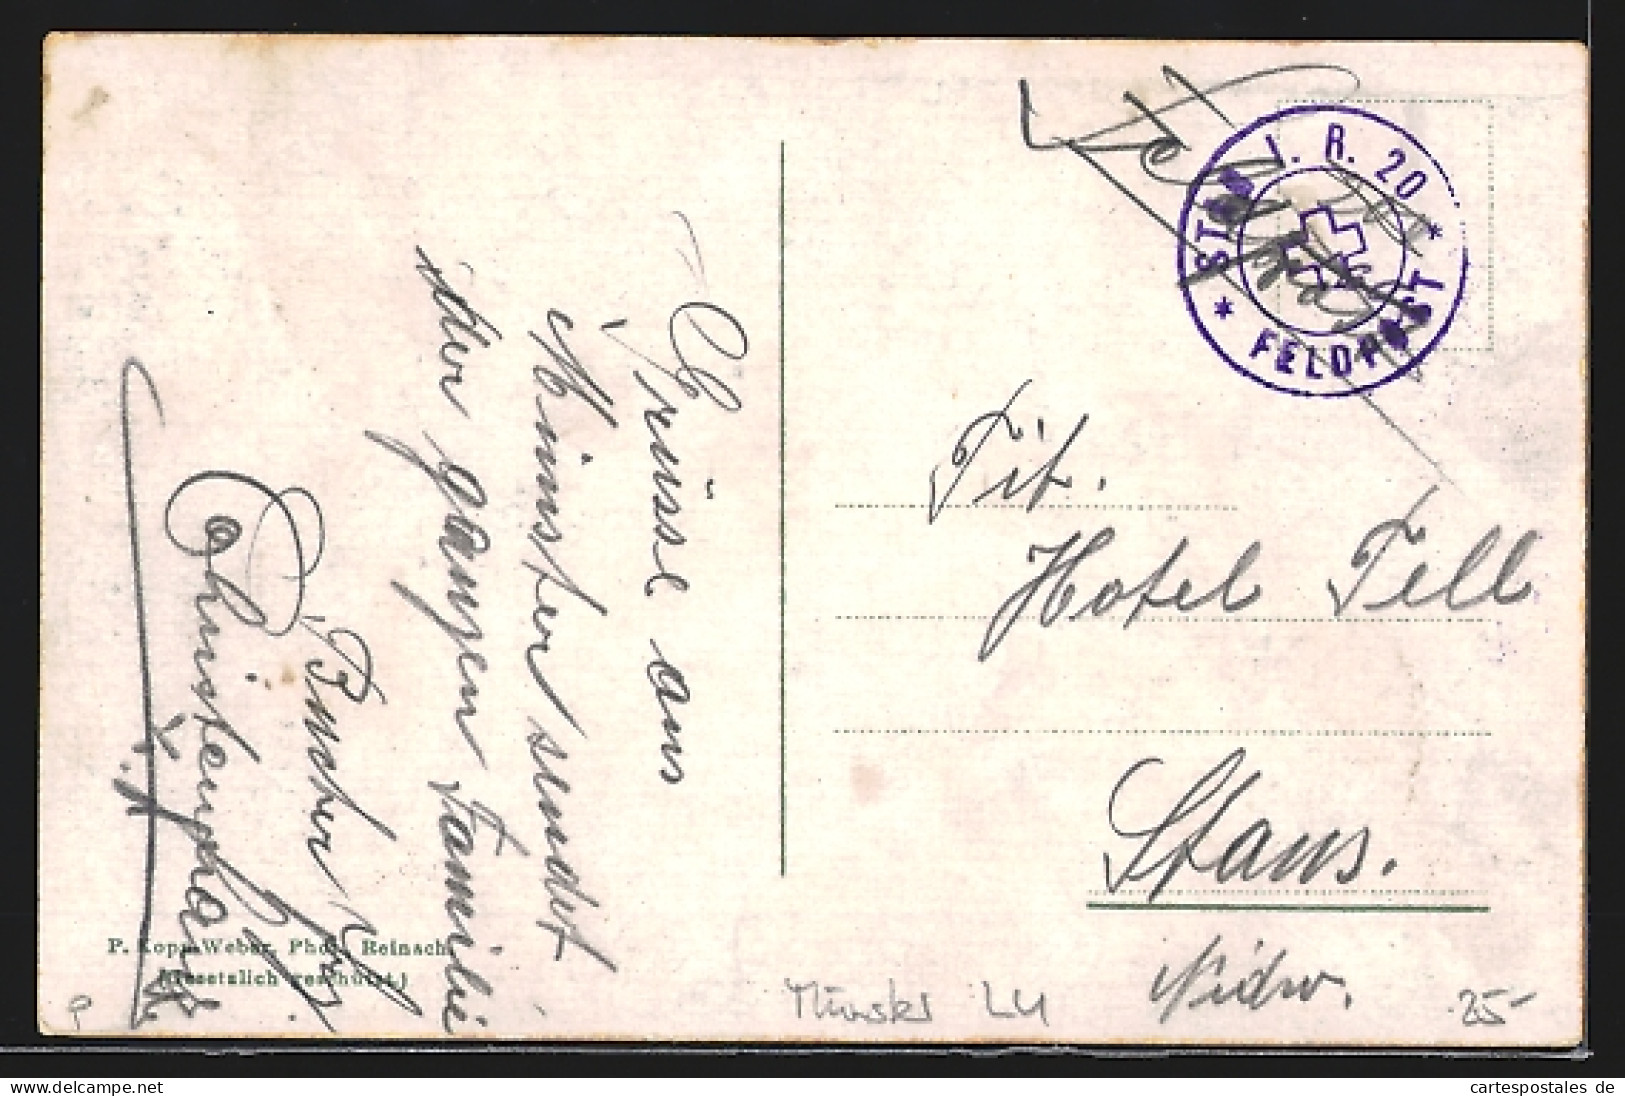 Grüsse aus
Münster sendet
der ganzen Familie
Christen
P. Kopp-Weber, Phot. Reinach.
(Gesetzlich geschützt.)
STAB I. R. 20
* FELDPOST *
Feldpost
Tit.
Hotel Tell
Stans.
Nidw.
Münster LU
25-
cartespostales de